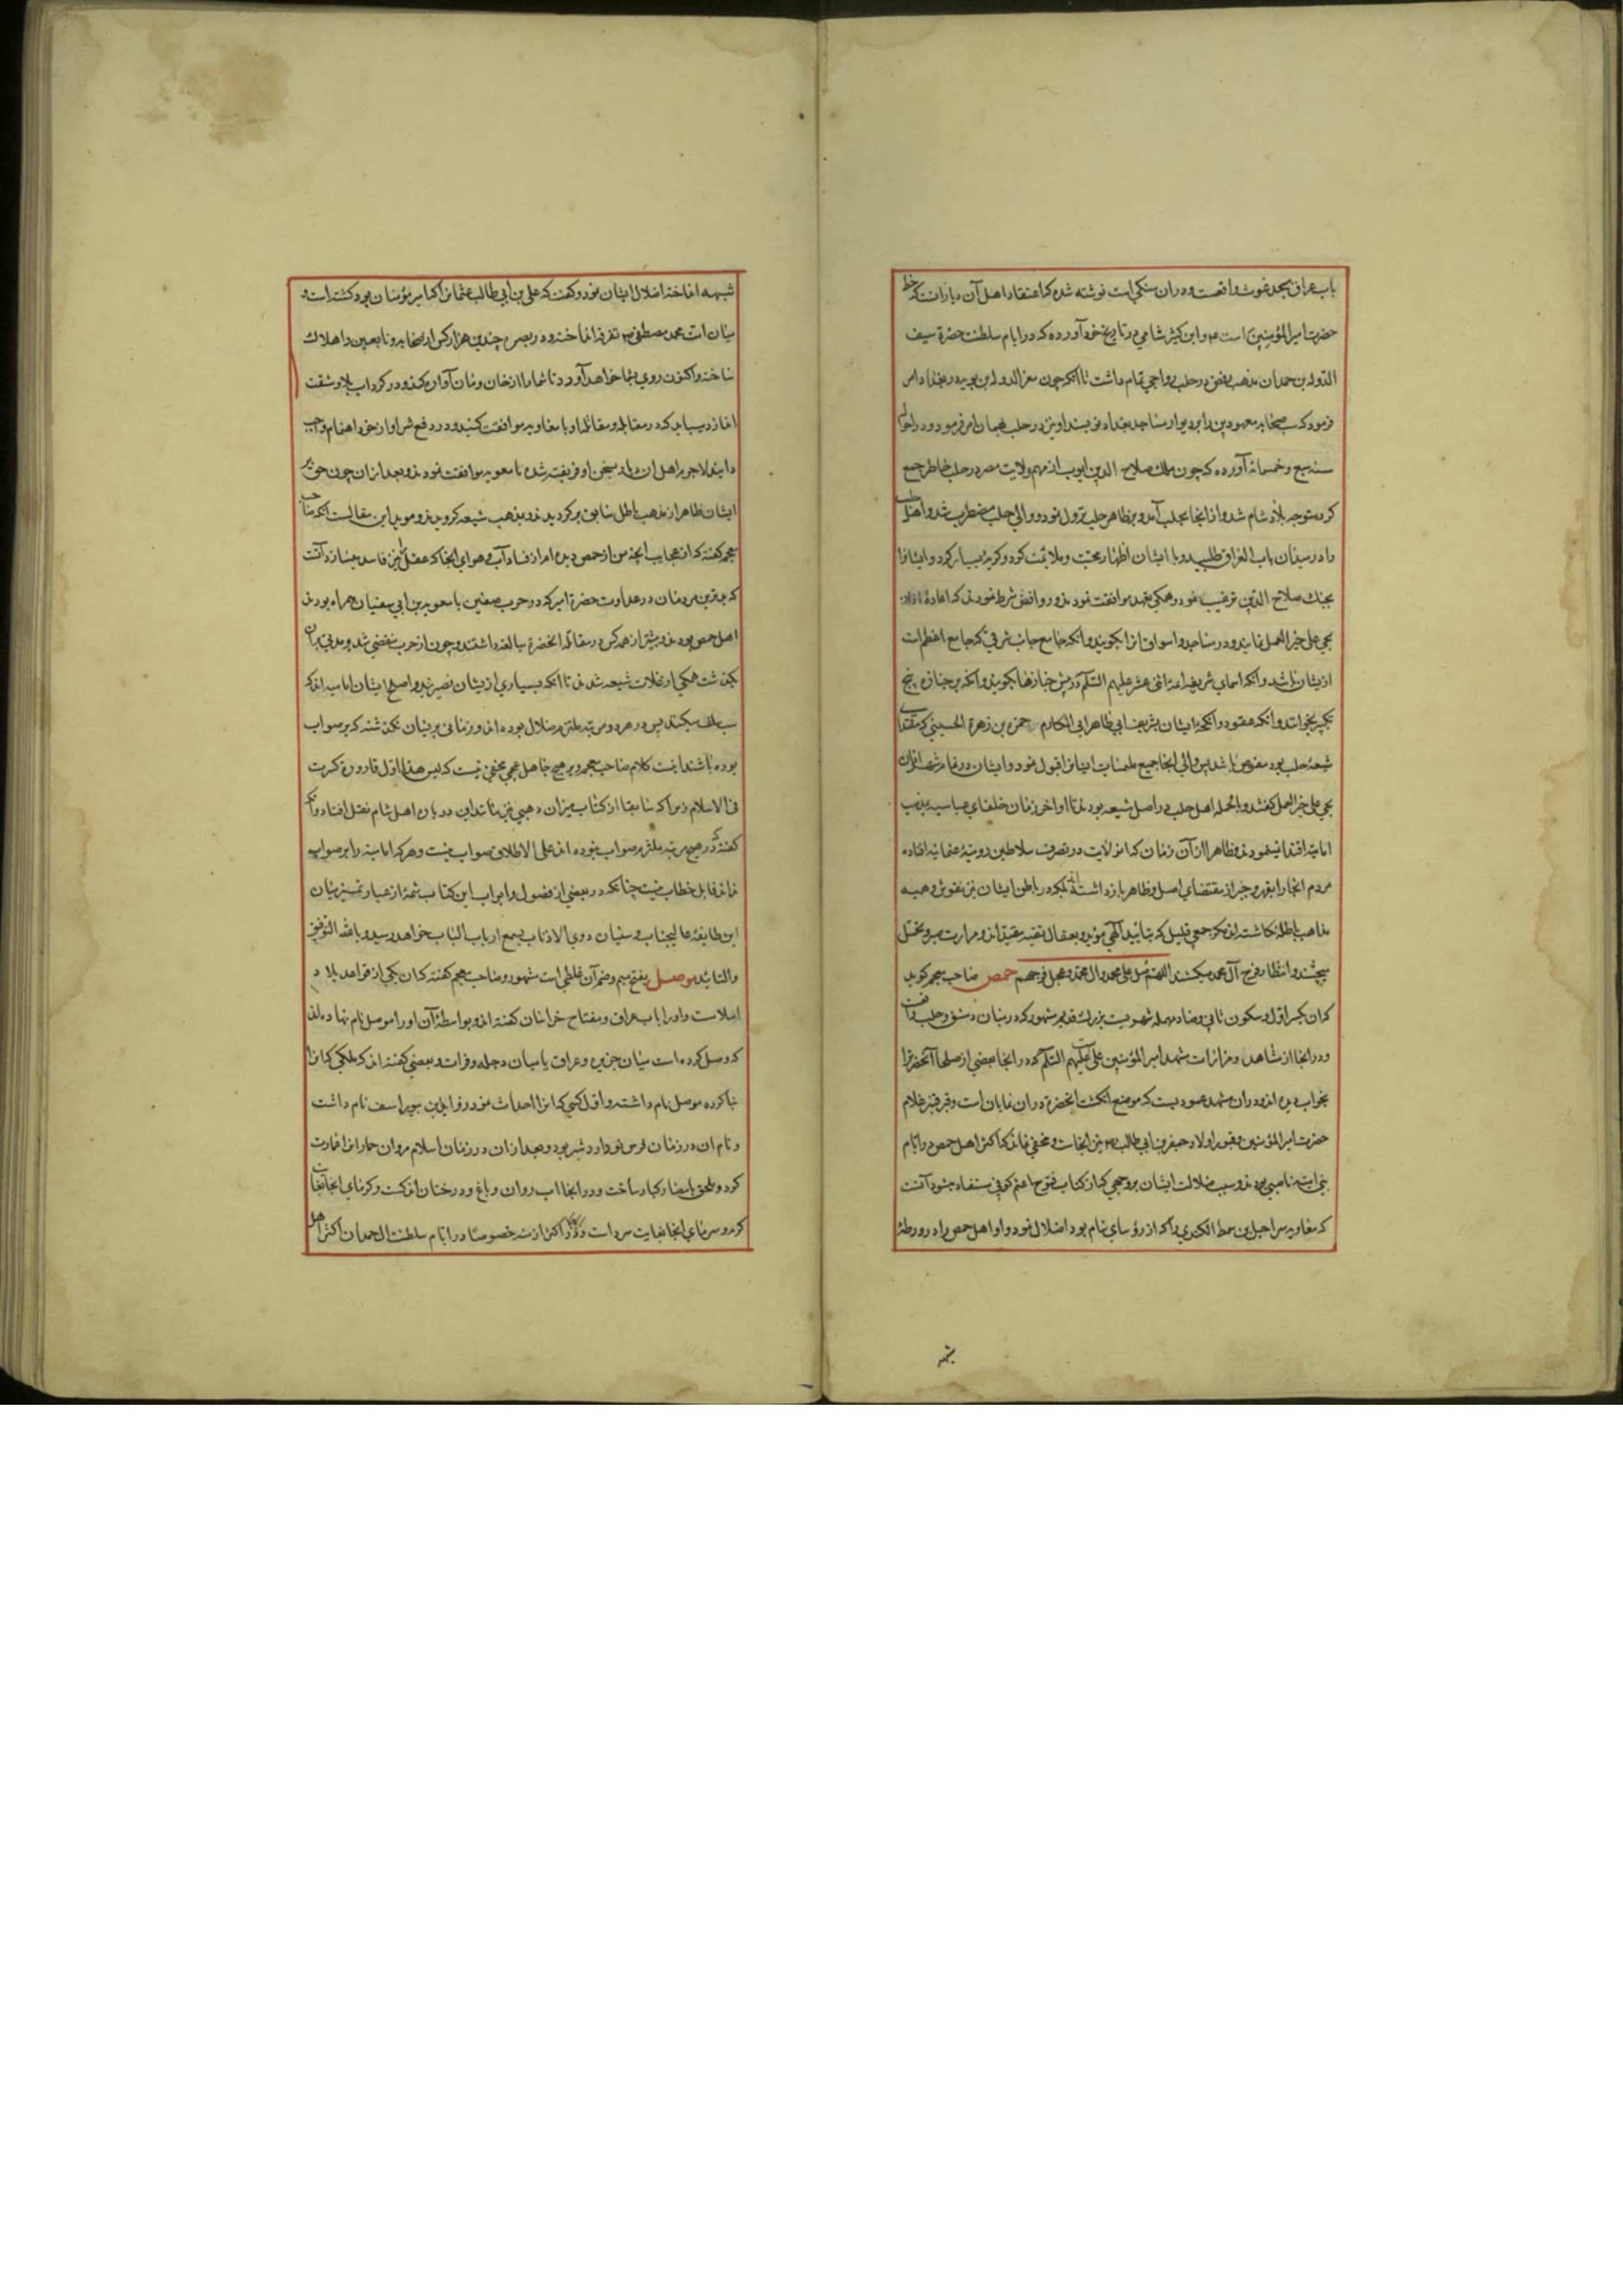 باب عراق مسجد غوث واقعست و دران سنکی است نوشته شده که اعتقاد اهل آن دیار انست که خط
حضرت امیر المؤمنین است و ابن کثیر شامی در تاریخ خود آورده که در ایام سلطنت حضرة سیف
الدوله بن حمدان مذهب رفض در حلب رواجی تمام داشت تا انکه چون معز الدوله ابن بویه در بغداد امر
فرمود که سب صحابه معهودین را بر دیوار مساجد بغداد نویسند او نیز در حلب بهمان امر فرمود و در احوال
سنه سبع و خمسمائه آورده که چون ملک صلاح الدین ایوب از مهم ولایت مصر در حلب خاطر جمع
کرد متوجه بلاد شام شد و از انجا بحلب آمد و بظاهر حلب نزول نمود و والی حلب مضطرب شد و اهل حلب
را در میدان باب العراق طلبید و با ایشان اظهار محبت و ملائمت کرد و کریه بسیار کرد و ایشانرا
بجنک صلاح الدین ترغیب نمود و همکی بعهد موافقت نمودند و روافض شرط نمودند که اعادهٔ اذان
بحی علی خیر العمل نمایند و در مساجد و اسواق انرا بکویند و انکه جامع جانب شرقی که جامع اعظم است
از یشان باشد و انکه اسمای شریفه ائمه اثنی عشر علیهم السلام در پیش جنازها بکویند و انکه بر جنازه پنج
تکبیر بخوانند و انکه عقود و انکحه ایشان بشریف ابی طاهر ابی المکارم حمزه بن زهرة الحسینی که مقتدای
شیعهٔ حلب بود مفوض باشد پس والی انجا جمیع ملتمسات ایشانرا قبول نمود و ایشان در تمام شهر اذان
بحی علی خیر العمل کفتند و بالجمله اهل حلب در اصل شیعه بودند تا اواخر زمان خلفای عباسیه بمذهب
امامیه اقتدا مینمودند و ظاهرا از آن زمان که ان ولایت در تصرف سلاطین رومیهٔ عثمانیه افتاده
مردم انجا را بقهر و جبر از مقتضای اصل و ظاهر باز داشته اند بلکه در باطن ایشان نیز نقوش وهمیه
مذاهب باطله نکاشته اند مکر جمعی قلیل که بتایید آلهی مؤید و بعقال تقیه مقید اند و مرارت صبر و تحمل
میچشند و انتظار فرج آل محمد میکشند اللهم صل علی محمد و ال محمد و عجل فرجهم حمص صاحب معجم کوید
که ان بکسر اول و سکون ثانی و صاد مهمله شهریست بزرک قدیم مشهور که در میان دمشق و حلب واقعست
و در انجا از مشاهد و مزارات مشهد امیر المؤمنین علی علیهم السلام که در انجا بعضی از صلحا آنحضرترا
بخواب دیده اند و در ان مشهد عمودیست که موضع انکشت انحضرة در ان نمایان است و قبر قنبر غلام
حضرت امیر المؤمنین و قبور اولاد جعفر بن ابی طالب نیز انجاست و مخفی نماند که اکثر اهل حمص در ایام
بنی امیه ناصبی بودند و سبب ضلالت ایشان بر وجهی که از کتاب فتوح اعثم کوفی مستفاد میشود آنست
که معاویه شراحبیل بن سمط الکندی را که از رؤسای شام بود اضلال نمود و او اهل حمص را در ورطهٔ
شبهه
شبهه انداخته اضلال ایشان نمود و کفت که علی بن ابی طالب عثمان را که امیر مؤمنان بود کشته است و
میان امت محمد مصطفی تفرقه انداخته و در بصره چندین هزار کس از صحابه و تابعین را هلاک
ساخته و اکنون روی بشما خواهد آورد تا شمارا از خان و مان آواره کند و در کرداب بلا و مشقت
اندازد میباید که در مقابله و مقاتله او با معاویه موافقت کنید و در دفع شر او از خود اهتمام واجب
دانید لاجرم اهل ان دیار بسخن او فریفته شده با معویه موافقت نمودند و بعد از ان چون حق بر
ایشان ظاهر از مذهب باطل سابق بر کردیدند و بمذهب شیعه کرویدند و موید این مقالست انکه صاحب
معجم کفته که از عجایب انچه من از حمص دیده ام از فساد آب و هوای انجا که عقل را نیز فاسد میسازد آنست
که بدترین مردمان در عداوت حضرة امیر که در حرب صفین با معویه بن ابی سفیان همراه بودند
اهل حمص بودند و بیشتر از همه کس در مقاتله انحضرة مبالغه داشتند و چون از حرب منقضی شد و مدتی بران
بکذشت همکی از غلات شیعه شدند تا انکه بسیاری از یشان نصیریند و اصل ایشان امامیه اند که
سب سلف میکنند پس در هر دو مرتبه ملتزم ضلال بوده اند و زمانی بریشان نکذشته که بر صواب
بوده باشند اینست کلام صاحب معجم و بر هیچ جاهل عجمی مخفی نیست که لیس هذا اول قارورة کسرت
فی الاسلام زیرا که سابقا از کتاب میزان ذهبی نیز مانند این در باره اهل شام نقل افتاد و انکه
کفته که در هیچ مرتبه ملتزم صواب نبوده اند علی الاطلاق صواب نیست و هر که امامیه را بر صواب
نداند قابل خطاب نیست چنانکه در بعضی از فصول و ابواب این کتاب شمهٔ از عیار تمییز میان
این طایفهٔ عالیجناب و سنیان ذوی الاذناب بسمع ارباب الباب خواهد رسید و بالله التوفیق
والتائید موصل بفتح میم و ضم آن غلطی است مشهور و صاحب معجم کفته که ان یکی از قواعد بلاد
اسلامست و او را باب عراق و مفتاح خراسان کفته اند و بواسطهٔ آن او را موصل نام نهاده اند
که وصل کرده است میان جزیره و عراق یا میان دجله و فرات و بعضی کفته اند که ملکی که انرا
بنا کرده موصل نام داشته و اول کسی که انرا احداث نمود راوند بن بیوراسف نام داشت
و نام ان در زمان فرس نوداردشیر بود و بعد از ان در زمان اسلام مروان حمار انرا عمارت
کرد و ملحق بامصار کبار ساخت و در انجا اب روان و باغ و درختان اندکست و کرمای انجا بغایت
کرم و سرمای انجا بغایت سرد است و در اکثر ازمنه خصوصا در ایام سلطنت ال حمدان اکثر اهل